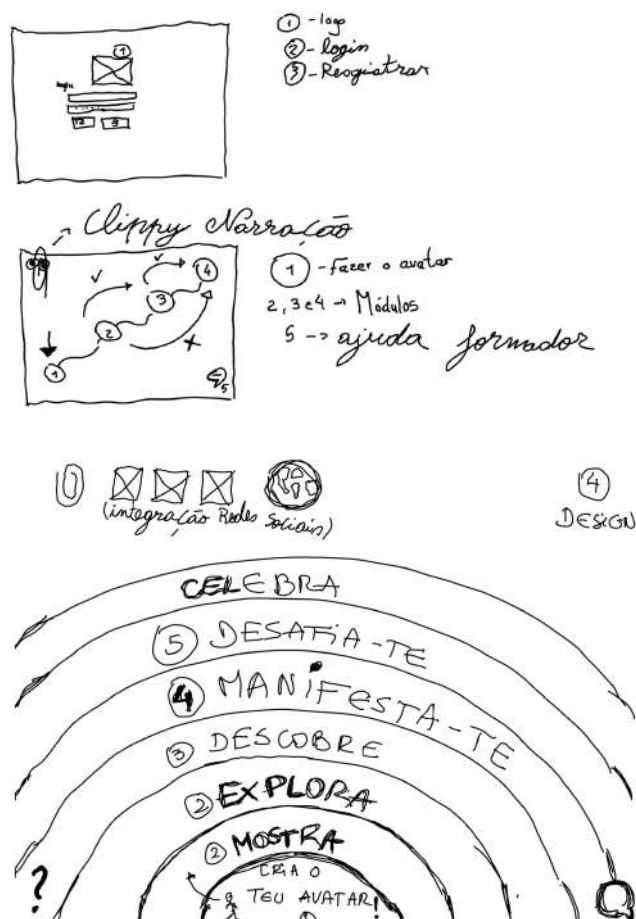 ① - logo
② - login
③ - Resgistrar
1
login
12
3
Clippy Narração
4
3
2
1
5
① - fazer o avatar
2, 3 e 4 → Módulos
5 -> ajuda formador
④
DESIGN
(integração Redes Sociais)
CELEBRA
⑤ DESAFIA-TE
④ MANIFESTA-TE
③ DESCOBRE
② EXPLORA
② MOSTRA
CRIA O
TEU AVATAR!
?